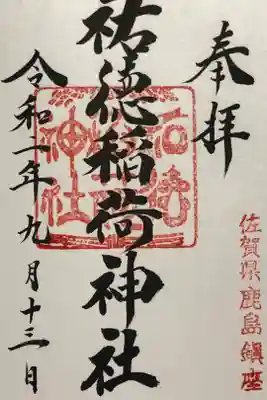 奉拝
佐賀県鹿島鎮座
祐徳稲荷神社
令和一年九月十三日